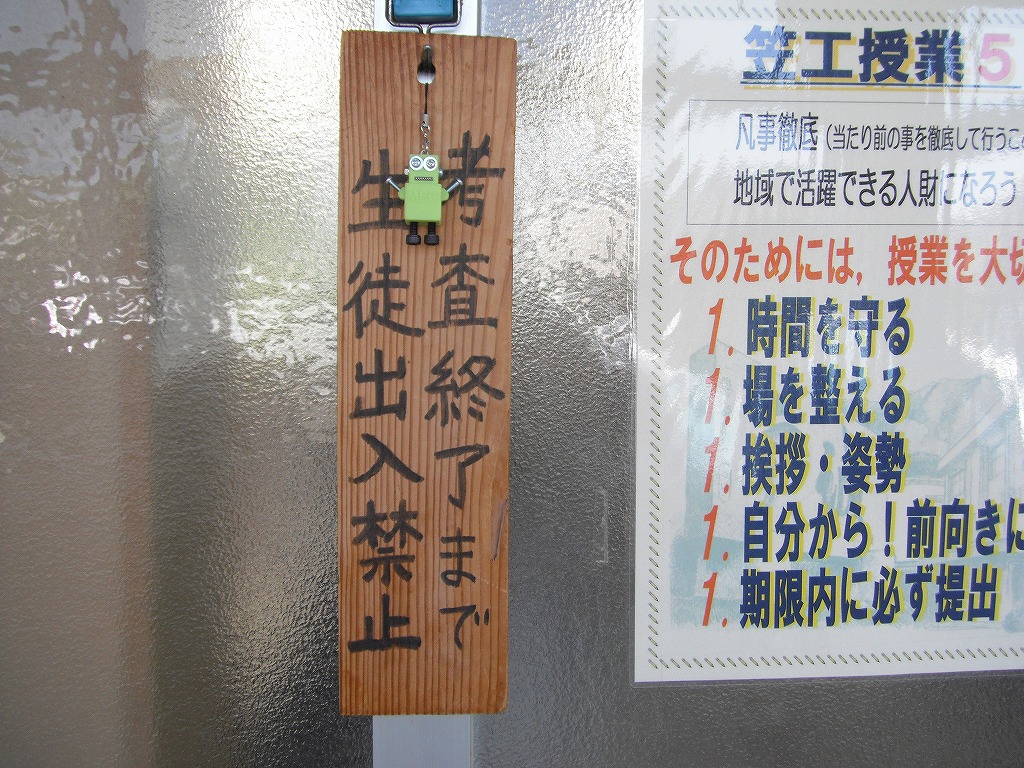 考査終了まで
生徒出入禁止
笠工授業5
凡事徹底(当たり前の事を徹底して行うこ
地域で活躍できる人財になろう
そのためには,授業を大切
1.時間を守る
1.場を整える
1.挨拶・姿勢
1.自分から!前向きに
1.期限内に必ず提出